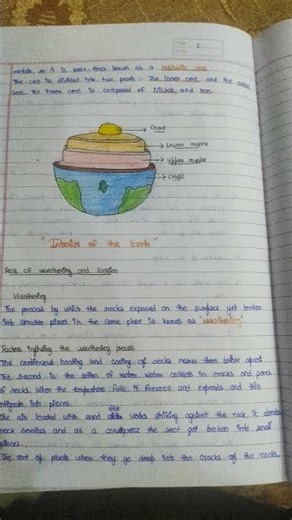 2
metals, so it is some-times known as a metallic core
The core is divided into two parts :- The inner core and the outer
core. The inner core is composed of nickle and iron.
Core
Lower mantle
Upper mantle
Crust
"Interior of the Earth"
Role of weathering and Erosion
Weathering
The process by which the rocks exposed on the surface get broken
into smaller pieces in the same place is known as "weathering"
Factors the weathering process
The continuous heating and cooling of rocks makes them
The second is the action of water. Water collects in cracks and pores
of rocks. When the temperature falls, it freezes and expands and this
into pieces
The air loaded with sand striking against the rock. It
rock and as a the rock get broken into small
pieces.
The root of plants when they go deep into the cracks of the rocks